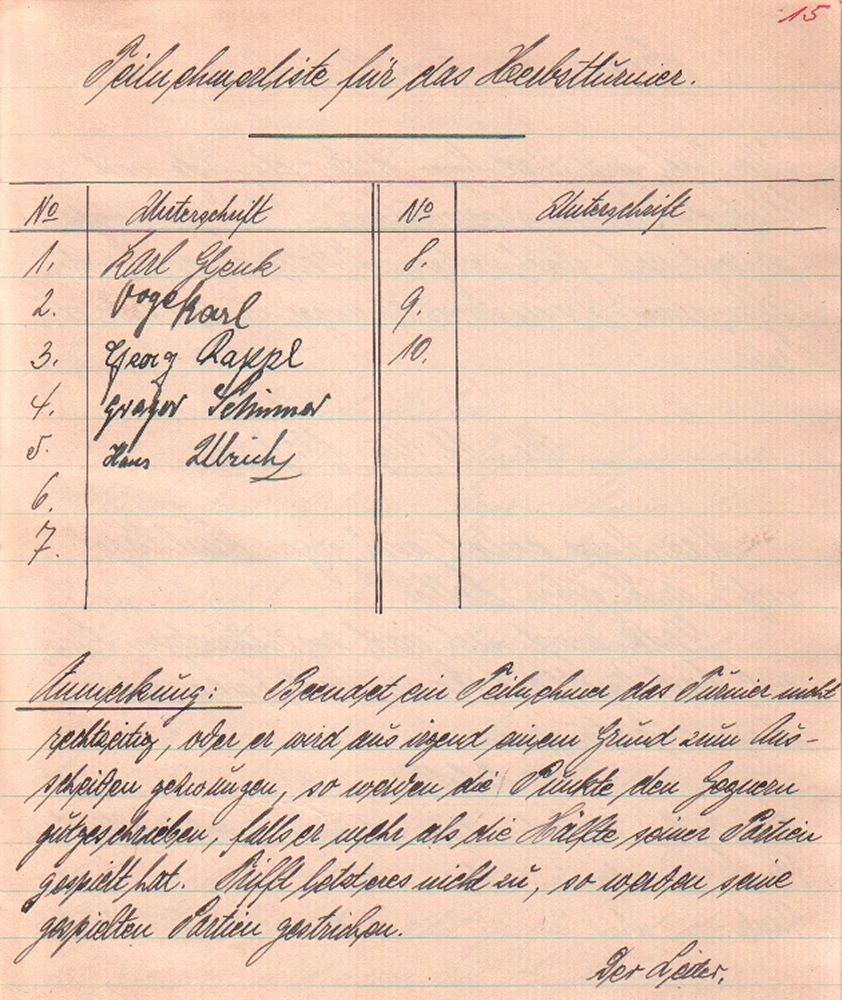 15
Teilnehmerliste für das Herbstturnier.
No Unterschrift No Unterschrift
1. Karl Glenk 8.
2. Vogel Karl 9.
3. Georg Rappl 10.
4. Gregor Schinner
5. Hans Ulrich
6.
7.
Anmerkung: Beendet ein Teilnehmer das Turnier nicht
rechtzeitig, oder er wird aus irgend einem Grund zum Aus-
scheiden gezwungen, so werden die Punkte den Gegnern
gutgeschrieben, falls er mehr als die Hälfte seiner Partien
gespielt hat. Trifft letzteres nicht zu, so werden seine
gespielten Partien gestrichen.
Der Leiter.